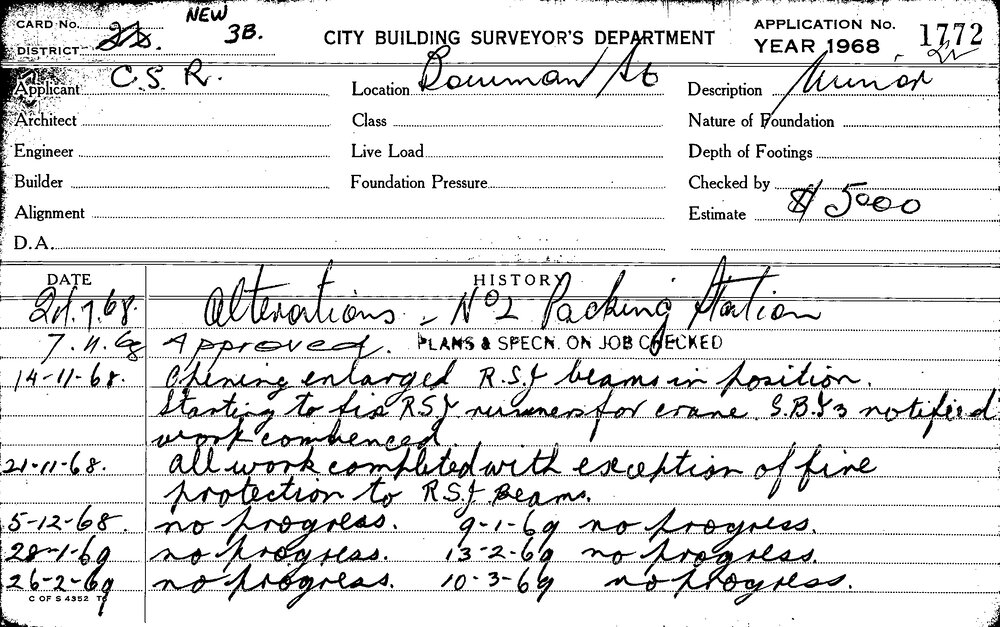 CARD No. NEW
DISTRICT 22. 3B. CITY BUILDING SURVEYOR'S DEPARTMENT
APPLICATION No. 1772
YEAR 1968
Applicant C.S.R. Location Bowman St Description Minor
Architect Class Nature of Foundation
Engineer Live Load Depth of Footings
Builder Foundation Pressure Checked by
Alignment Estimate $ 5000
D.A.
DATE HISTORY
7.68. Alterations - No 2 Packing Station
7.11.68 Approved. PLANS & SPECN. ON JOB CHECKED
14-11-68. Opening enlarged R.S.J beams in position.
Starting to fix R.S.J runners for crane. S.B.I 3 notified
work commenced.
21-11-68. All work completed with exception of fire
protection to R.S.J Beams.
5-12-68. no progress. 9-1-69 no progress.
28-1-69 no progress. 13-2-69 no progress.
26-2-69 no progress. 10-3-69 no progress.
C OF S 4352